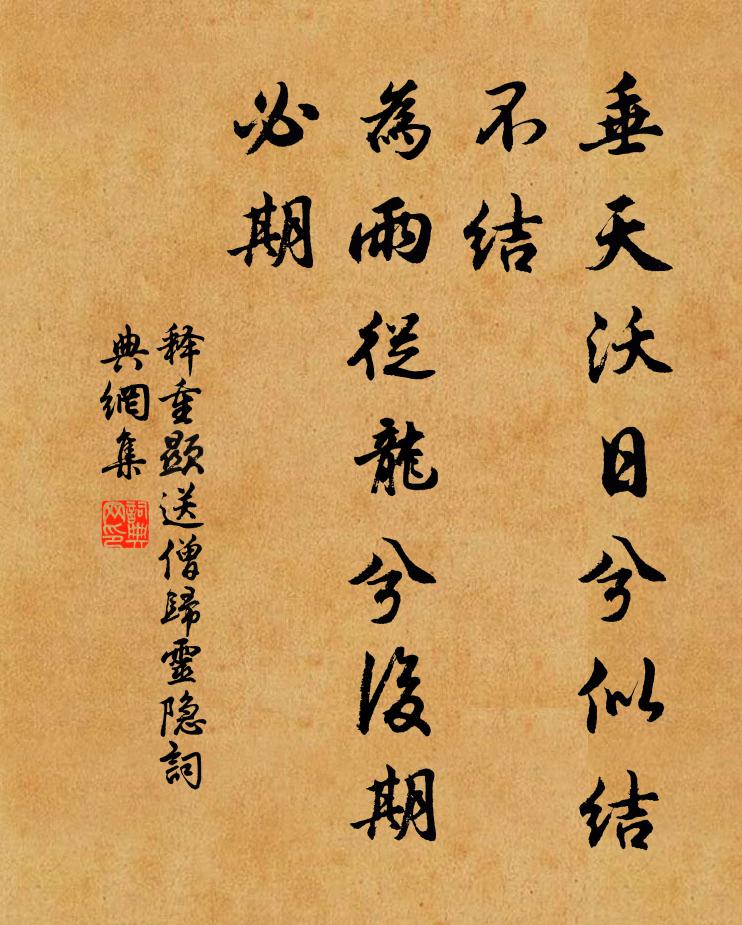 垂天沃日兮似结
不结
為雨從龍兮後期
必期
释重顯送僧歸靈隐詞
典網集
詞典
网印